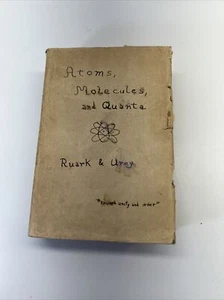 Atoms,
Molecules,
and Quanta
Ruark & Urey